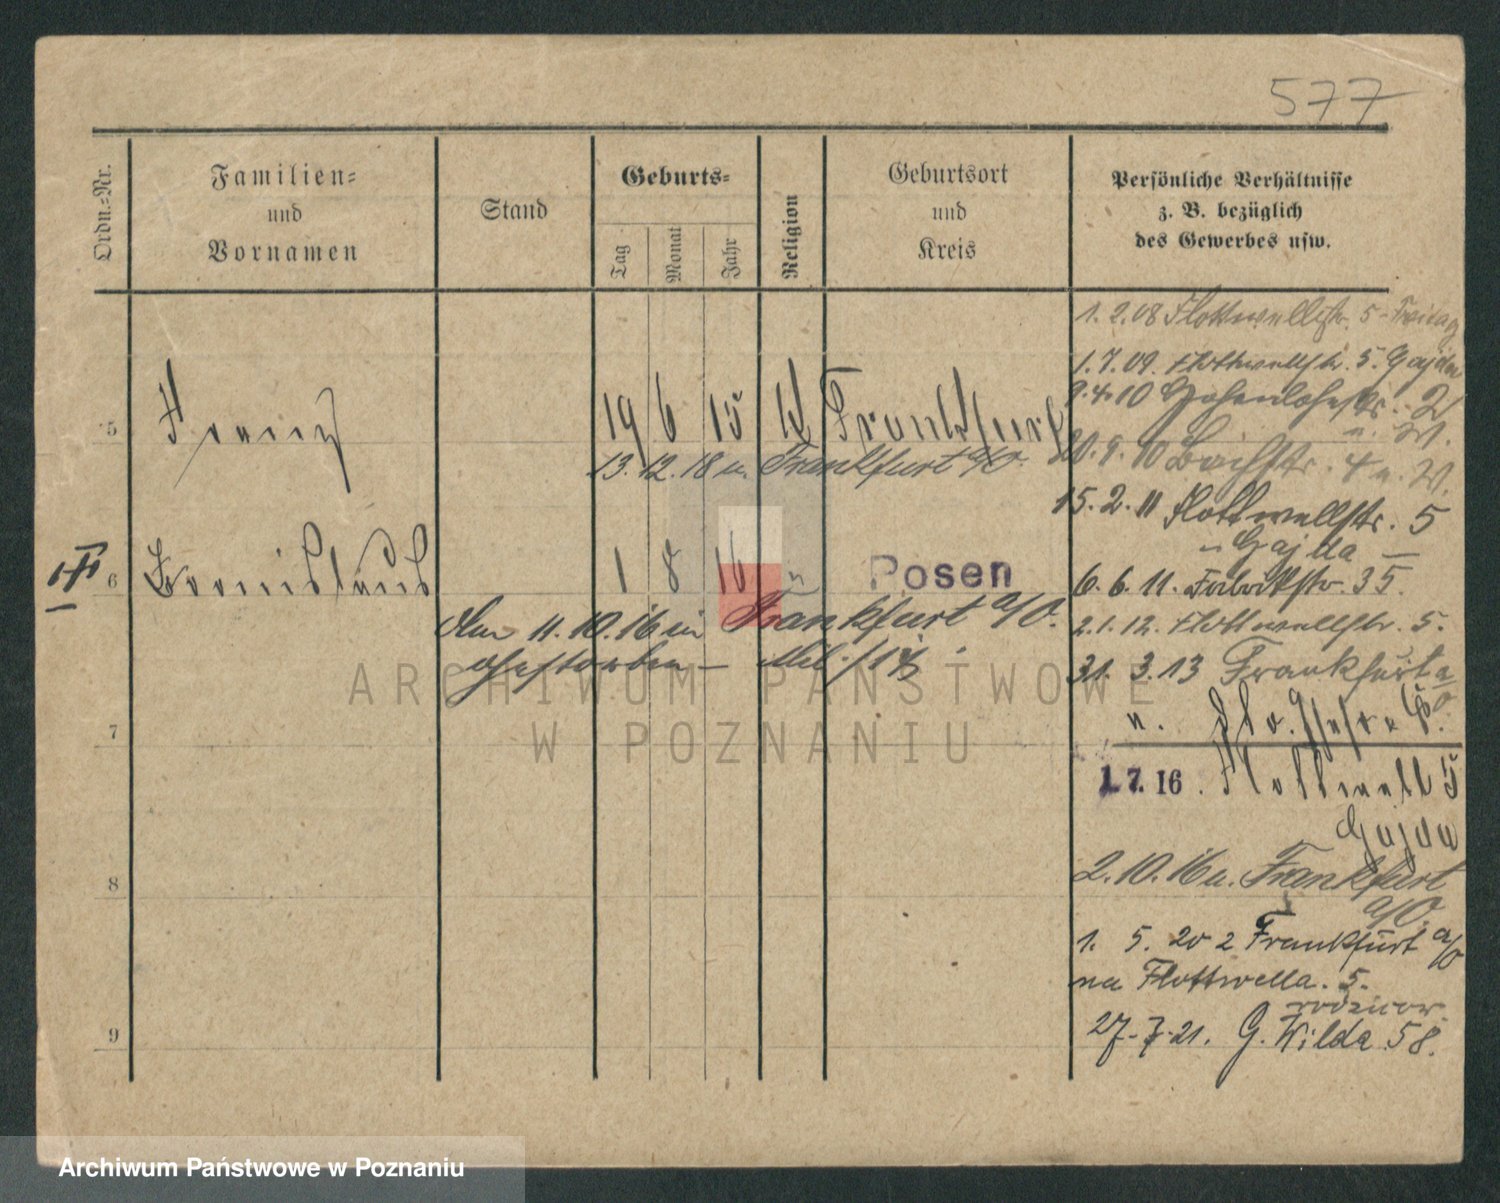 577
Ordn.-Nr.
Familien-
und
Vornamen
Stand
Geburts-
Tag
Monat
Jahr
Religion
Geburtsort
und
Kreis
Persönliche Verhältnisse
z. B. bezüglich
des Gewerbes usw.
1. 2. 08 Flottwellstr. 5 - Freitag
1. 7. 09. Flottwellstr. 5. Gajda
9. 4. 10 Hohenlohestr. 2
u. W.
20. 9. 10 Bachstr. 4 u. W.
15. 2. 11 Flottwellstr. 5
Gajda —
6. 6. 11. Fabrikstr. 35.
2. 1. 12. Flottwellstr. 5.
31. 3. 13 Frankfurt a/O
u.
1. 7. 16. Flottwell 5
Gajda
2. 10. 16 u. Frankfurt
a/O.
1. 5. 20 z Frankfurt a/O
na Flottwella. 5.
rodzicow.
27-7-21. G. Wilda 58.
5 Franz 19 6 15 Frankfurt
13. 12. 18 u. Frankfurt a/O.
6 Bronislaus 1 8 16 " Posen
Am 11. 10. 16 in Frankfurt a/O.
gestorben —
7
8
9
ARCHIWUM PAŃSTWOWE
W POZNANIU
Archiwum Państwowe w Poznaniu